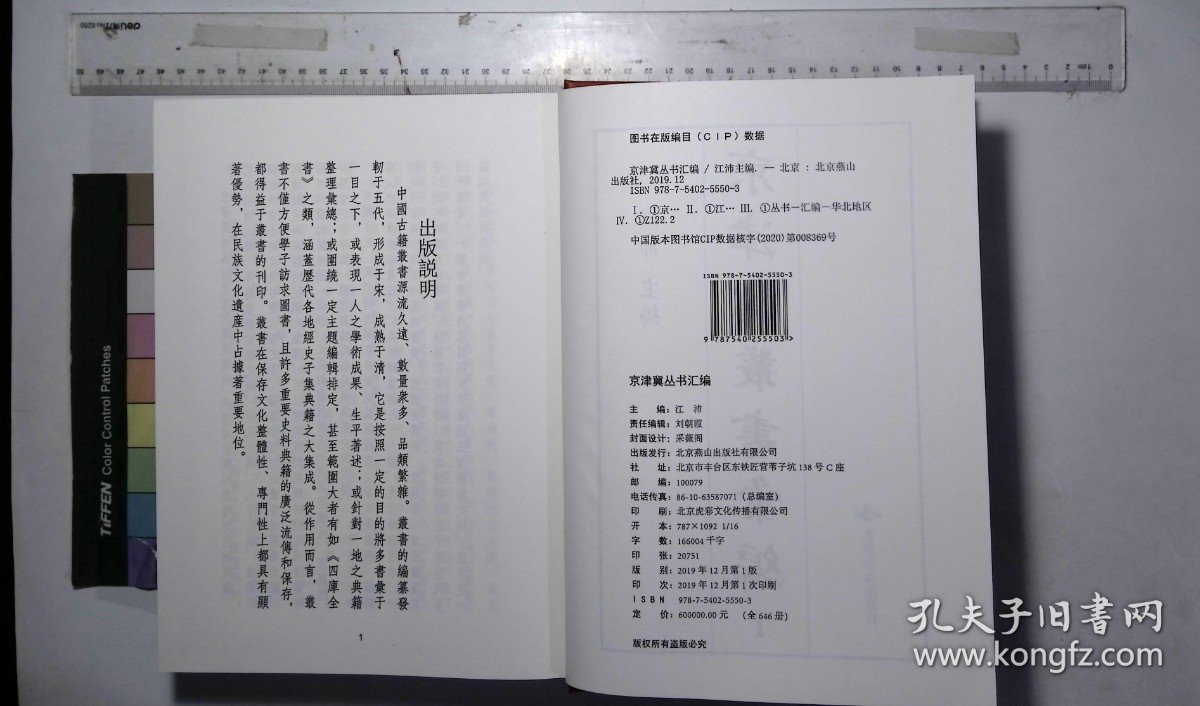 出版説明
中國古籍叢書源流久遠、數量衆多、品類繁雜。叢書的編纂發
軔于五代，形成于宋，成熟于清，它是按照一定的目的將多書彙于
一目之下，或表現一人之學術成果、生平著述；或針對一地之典籍
整理彙總；或圍繞一定主題編輯排定，甚至範圍大者有如《四庫全
書》之類，涵蓋歷代各地經史子集典籍之大集成。從作用而言，叢
書不僅方便學子訪求圖書，且許多重要史料典籍的廣泛流傳和保存，
都得益于叢書的刊印。叢書在保存文化整體性、專門性上都具有顯
著優勢，在民族文化遺産中占據著重要地位。
1
图书在版编目（CIP）数据
京津冀丛书汇编 / 江沛主编. -- 北京 : 北京燕山
出版社, 2019.12
ISBN 978-7-5402-5550-3
Ⅰ. ①京… Ⅱ. ①江… Ⅲ. ①丛书－汇编－华北地区
Ⅳ. ①Z122.2
中国版本图书馆CIP数据核字(2020)第008369号
ISBN 978-7-5402-5550-3
9 787540 255503>
京津冀丛书汇编
主 编：江 沛
责任编辑：刘朝霞
封面设计：采薇阁
出版发行：北京燕山出版社有限公司
社 址：北京市丰台区东铁匠营苇子坑 138 号 C 座
邮 编：100079
电话传真：86-10-63587071（总编室）
印 刷：北京虎彩文化传播有限公司
开 本：787×1092 1/16
字 数：166004 千字
印 张：20751
版 别：2019 年 12 月第 1 版
印 次：2019 年 12 月第 1 次印刷
ISBN 978-7-5402-5550-3
定 价：600000.00 元 （全 646 册）
版权所有盗版必究
TIFFEN Color Control Patches
deli
孔夫子旧书网
www.kongfz.com